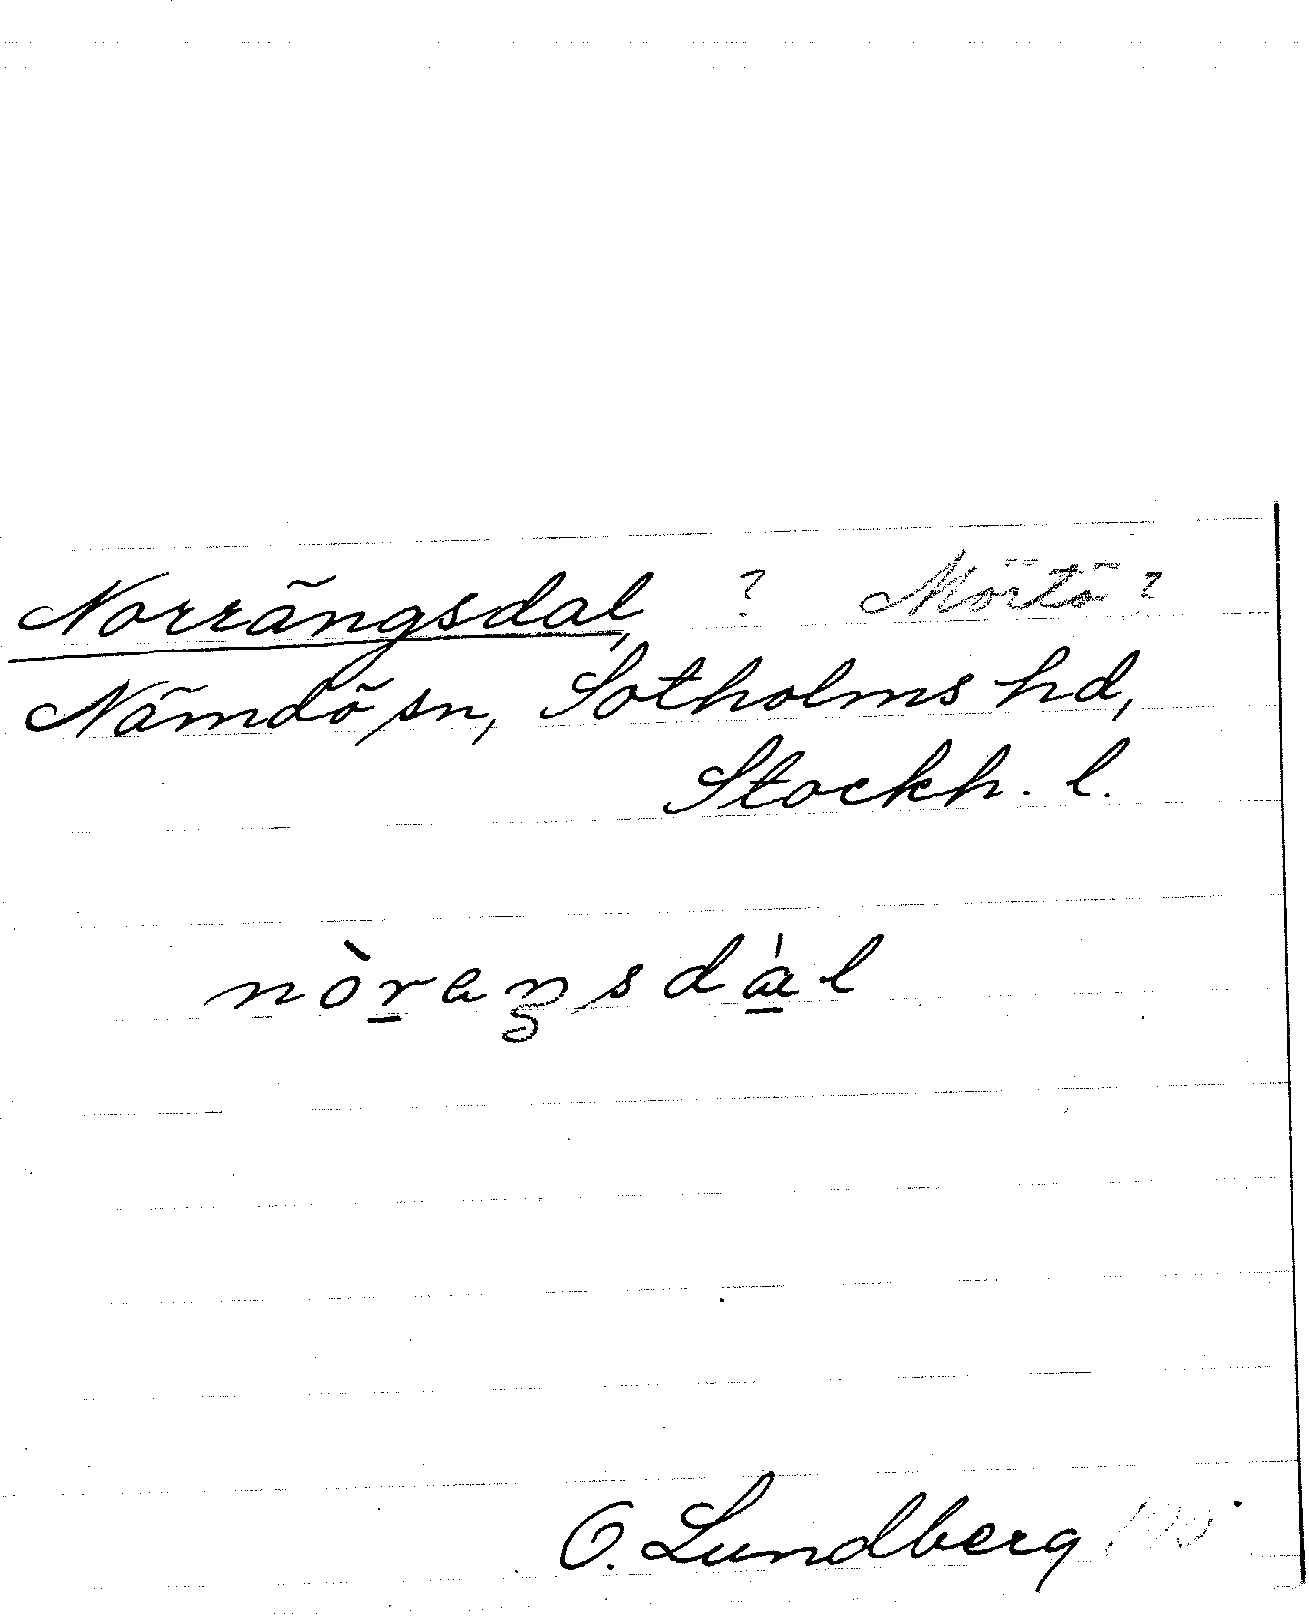 Norrängsdal ? Mörtö?
Nämdö sn, Sotholms hd,
Stockh. l.
nòr̲aŋsdà̲l
O. Lundberg